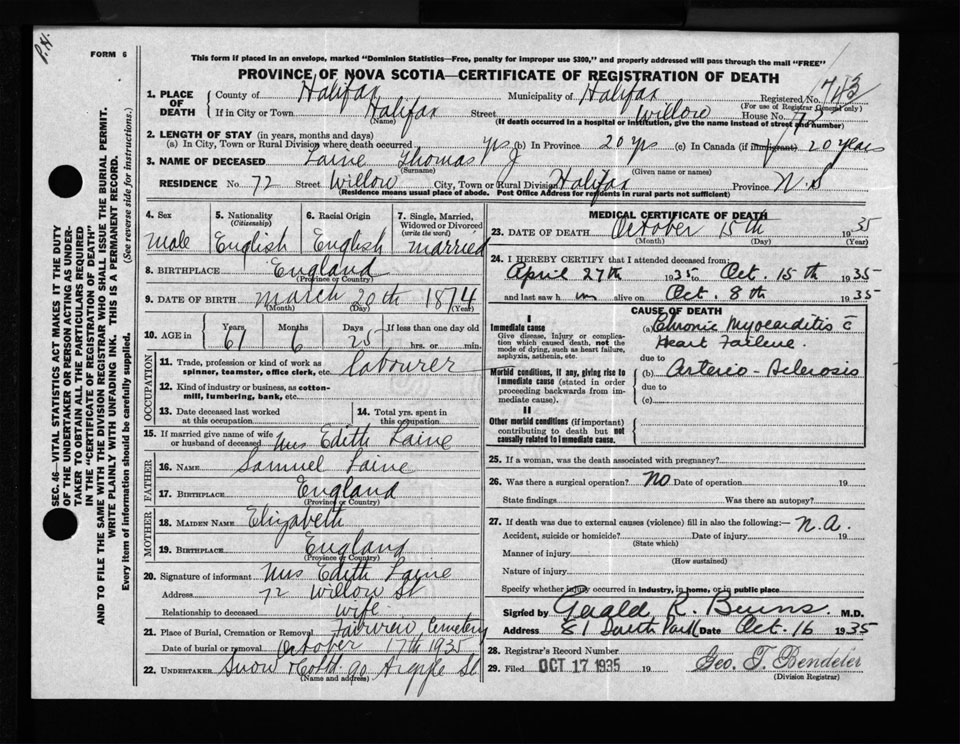 P.H.
FORM 6
This form if placed in an envelope, marked "Dominion Statistics—Free, penalty for improper use $300," and properly addressed will pass through the mail "FREE"
PROVINCE OF NOVA SCOTIA—CERTIFICATE OF REGISTRATION OF DEATH
1. PLACE OF DEATH
County of Halifax Municipality of Halifax Registered No. 743
(For use of Registrar General only)
If in City or Town Halifax (Name) Street Willow House No. 72
(If death occurred in a hospital or institution, give the name instead of street and number)
2. LENGTH OF STAY (in years, months and days)
(a) In City, Town or Rural Division where death occurred yrs (b) In Province 20 yrs (c) In Canada (if immigrant) 20 years
3. NAME OF DECEASED Laine Thomas J
(Surname) (Given name or names)
RESIDENCE No. 72 Street Willow City, Town or Rural Division Halifax Province N.S
(Residence means usual place of abode. Post Office Address for residents in rural parts not sufficient)
4. Sex Male
5. Nationality (Citizenship) English
6. Racial Origin English
7. Single, Married, Widowed or Divorced (write the word) married
8. BIRTHPLACE England
(Province or Country)
9. DATE OF BIRTH March 20th 1874
(Month) (Day) (Year)
10. AGE in Years 61 Months 6 Days 25 If less than one day old hrs. or min.
OCCUPATION
11. Trade, profession or kind of work as spinner, teamster, office clerk, etc. labourer
12. Kind of industry or business, as cotton-mill, lumbering, bank, etc.
13. Date deceased last worked at this occupation
14. Total yrs. spent in this occupation
15. If married give name of wife or husband of deceased Mrs Edith Laine
FATHER
16. NAME Samuel Laine
17. BIRTHPLACE England
(Province or Country)
MOTHER
18. MAIDEN NAME Elizabeth
19. BIRTHPLACE England
(Province or Country)
20. Signature of informant Mrs Edith Laine
Address 72 Willow St
Relationship to deceased wife
21. Place of Burial, Cremation or Removal Fairview Cemetery
Date of burial or removal October 17th 1935
22. UNDERTAKER Snow & Co Ltd. 90 Argyle St
(Name and address)
MEDICAL CERTIFICATE OF DEATH
23. DATE OF DEATH October 15th 1935
(Month) (Day) (Year)
24. I HEREBY CERTIFY that I attended deceased from:
April 27th 1935 to Oct. 15th 1935
and last saw him alive on Oct. 8th 1935
CAUSE OF DEATH
I
Immediate cause
Give disease, injury or complication which caused death, not the mode of dying, such as heart failure, asphyxia, asthenia, etc.
(a) Chronic Myocarditis c̄
Heart Failure.
due to
Morbid conditions, if any, giving rise to immediate cause (stated in order proceeding backwards from immediate cause).
(b) Arterio-Sclerosis
due to
(c)
II
Other morbid conditions (if important) contributing to death but not causally related to immediate cause.
25. If a woman, was the death associated with pregnancy?
26. Was there a surgical operation? No Date of operation 19
State findings Was there an autopsy?
27. If death was due to external causes (violence) fill in also the following:— N.A.
Accident, suicide or homicide? Date of injury 19
(State which)
Manner of injury
(How sustained)
Nature of injury
Specify whether injury occurred in industry, in home, or in public place
Signed by Gerald R. Burns. M.D.
Address 81 South Park Date Oct. 16 1935
28. Registrar's Record Number
29. Filed OCT 17 1935 19 Geo. T. Bendeler
(Division Registrar)
SEC. 46—VITAL STATISTICS ACT MAKES IT THE DUTY
OF THE UNDERTAKER OR PERSON ACTING AS UNDER-
TAKER TO OBTAIN ALL THE PARTICULARS REQUIRED
IN THE "CERTIFICATE OF REGISTRATION OF DEATH"
AND TO FILE THE SAME WITH THE DIVISION REGISTRAR WHO SHALL ISSUE THE BURIAL PERMIT.
WRITE PLAINLY WITH UNFADING INK. THIS IS A PERMANENT RECORD.
Every item of information should be carefully supplied. (See reverse side for instructions.)